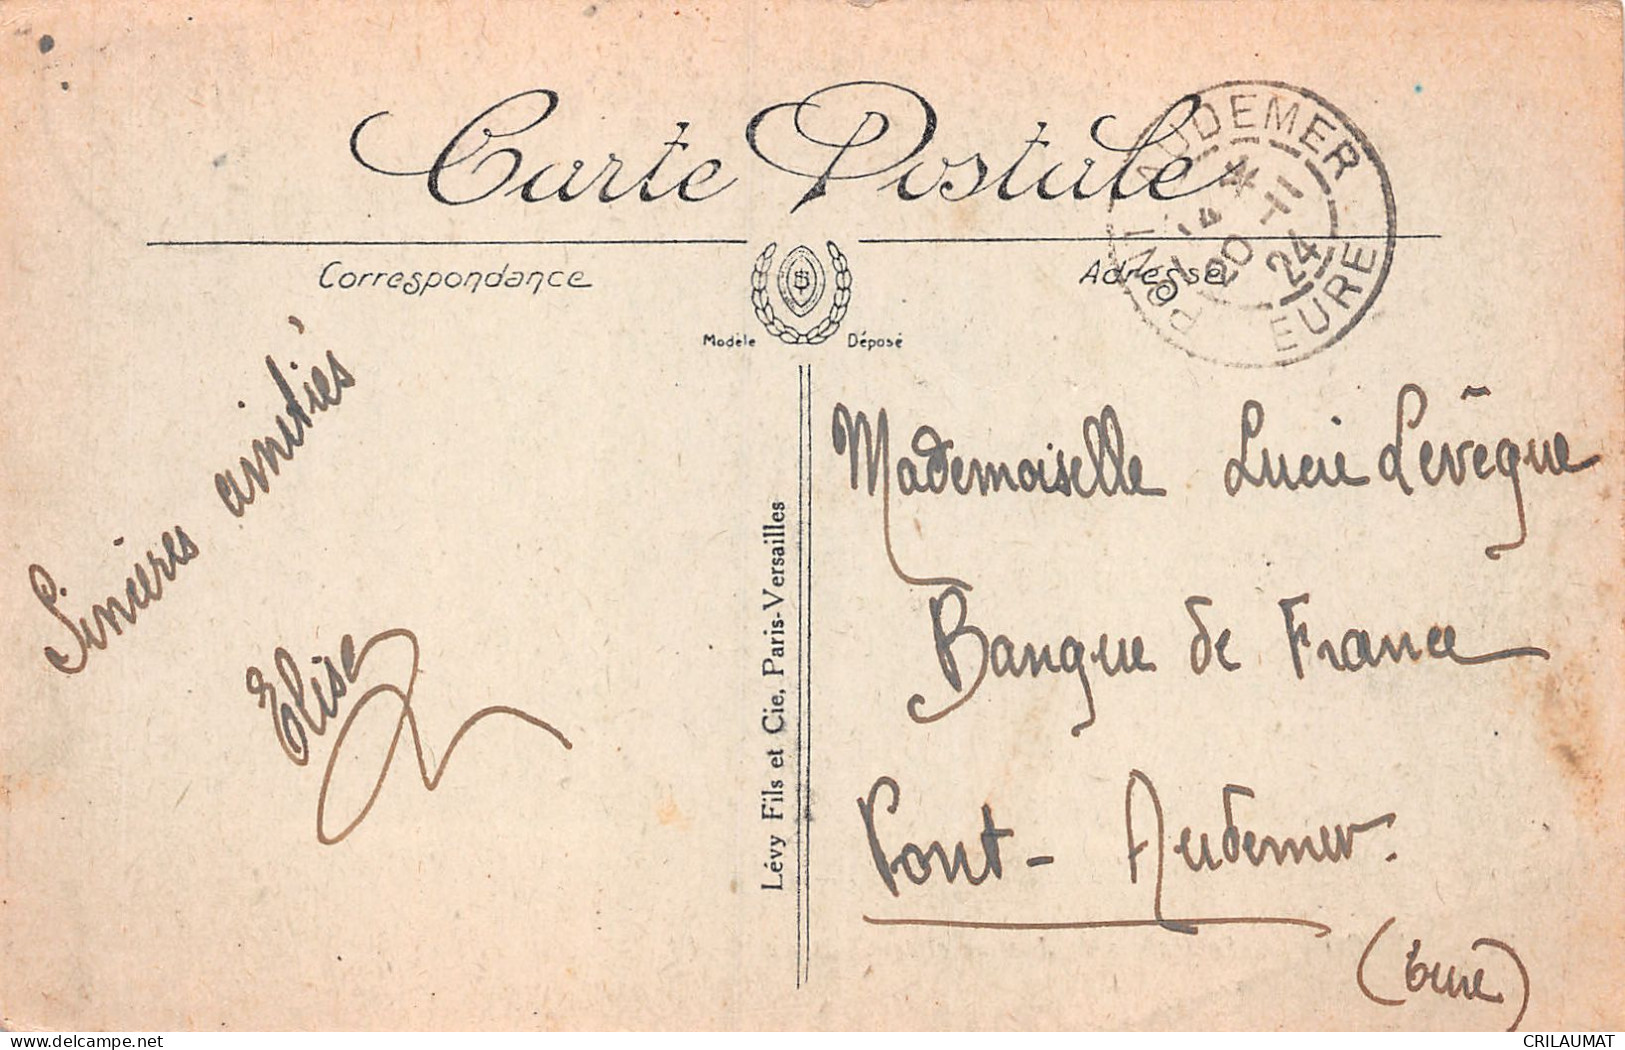 Carte Postale
Correspondance
Adresse
Modèle Déposé
PONT AUDEMER
20 -11
24
EURE
Sincères amitiés
Elise
Lévy Fils et Cie, Paris-Versailles
Mademoiselle Lucie Levêque
Banque de France
Pont-Audemer.
(Eure)
delcampe.net
CRILAUMAT